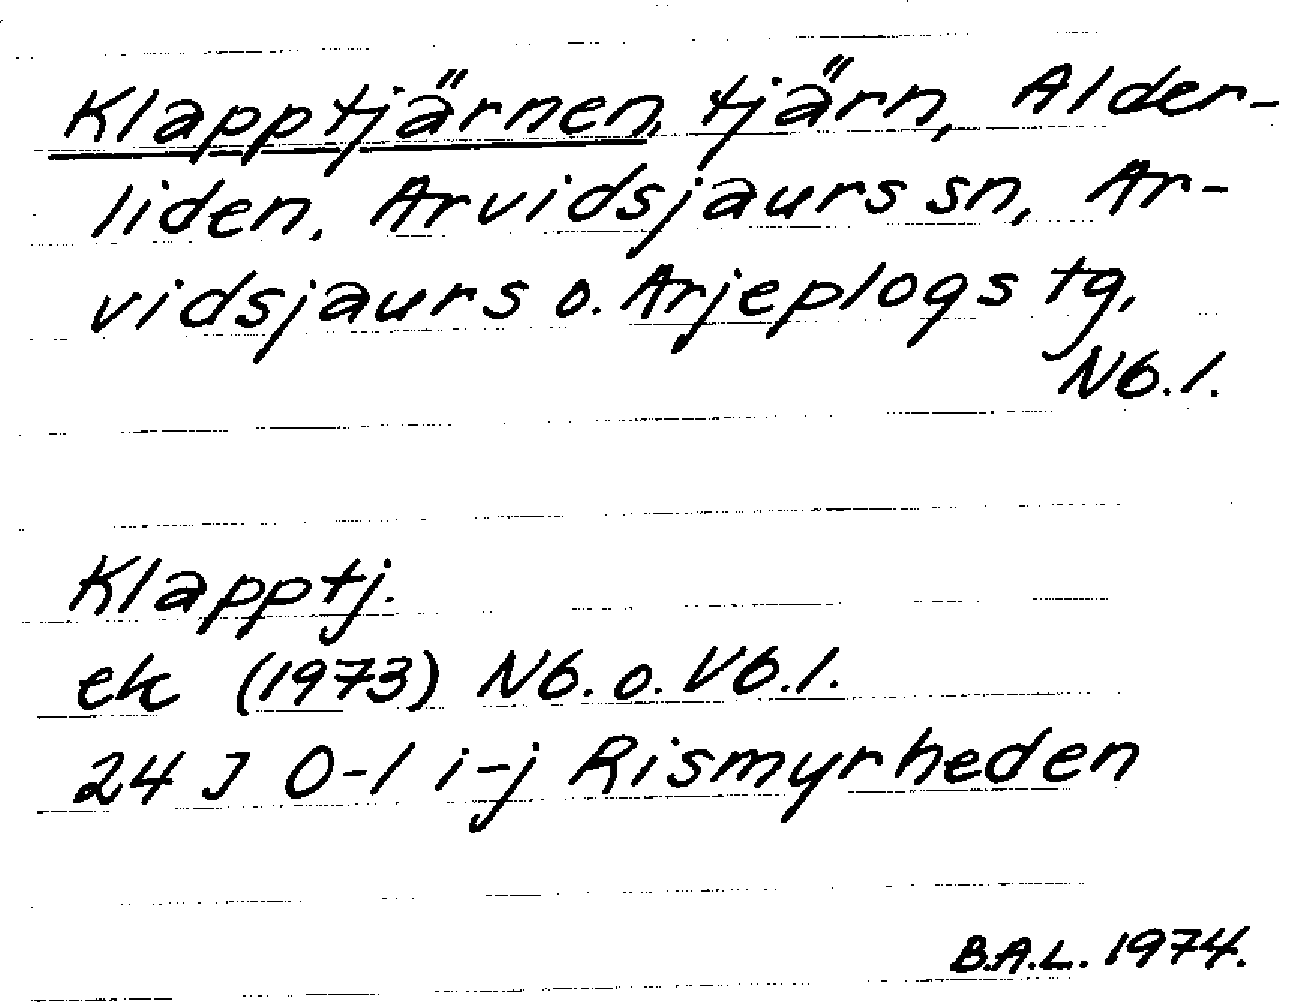 Klapptjärnen, tjärn, Alder-
liden, Arvidsjaurs sn, Ar-
vidsjaurs o. Arjeplogs tg,
Nb. l.
Klapptj.
ek (1973) Nb. o. Vb. l.
24 J 0-1 i-j Rismyrheden
B.A.L. 1974.